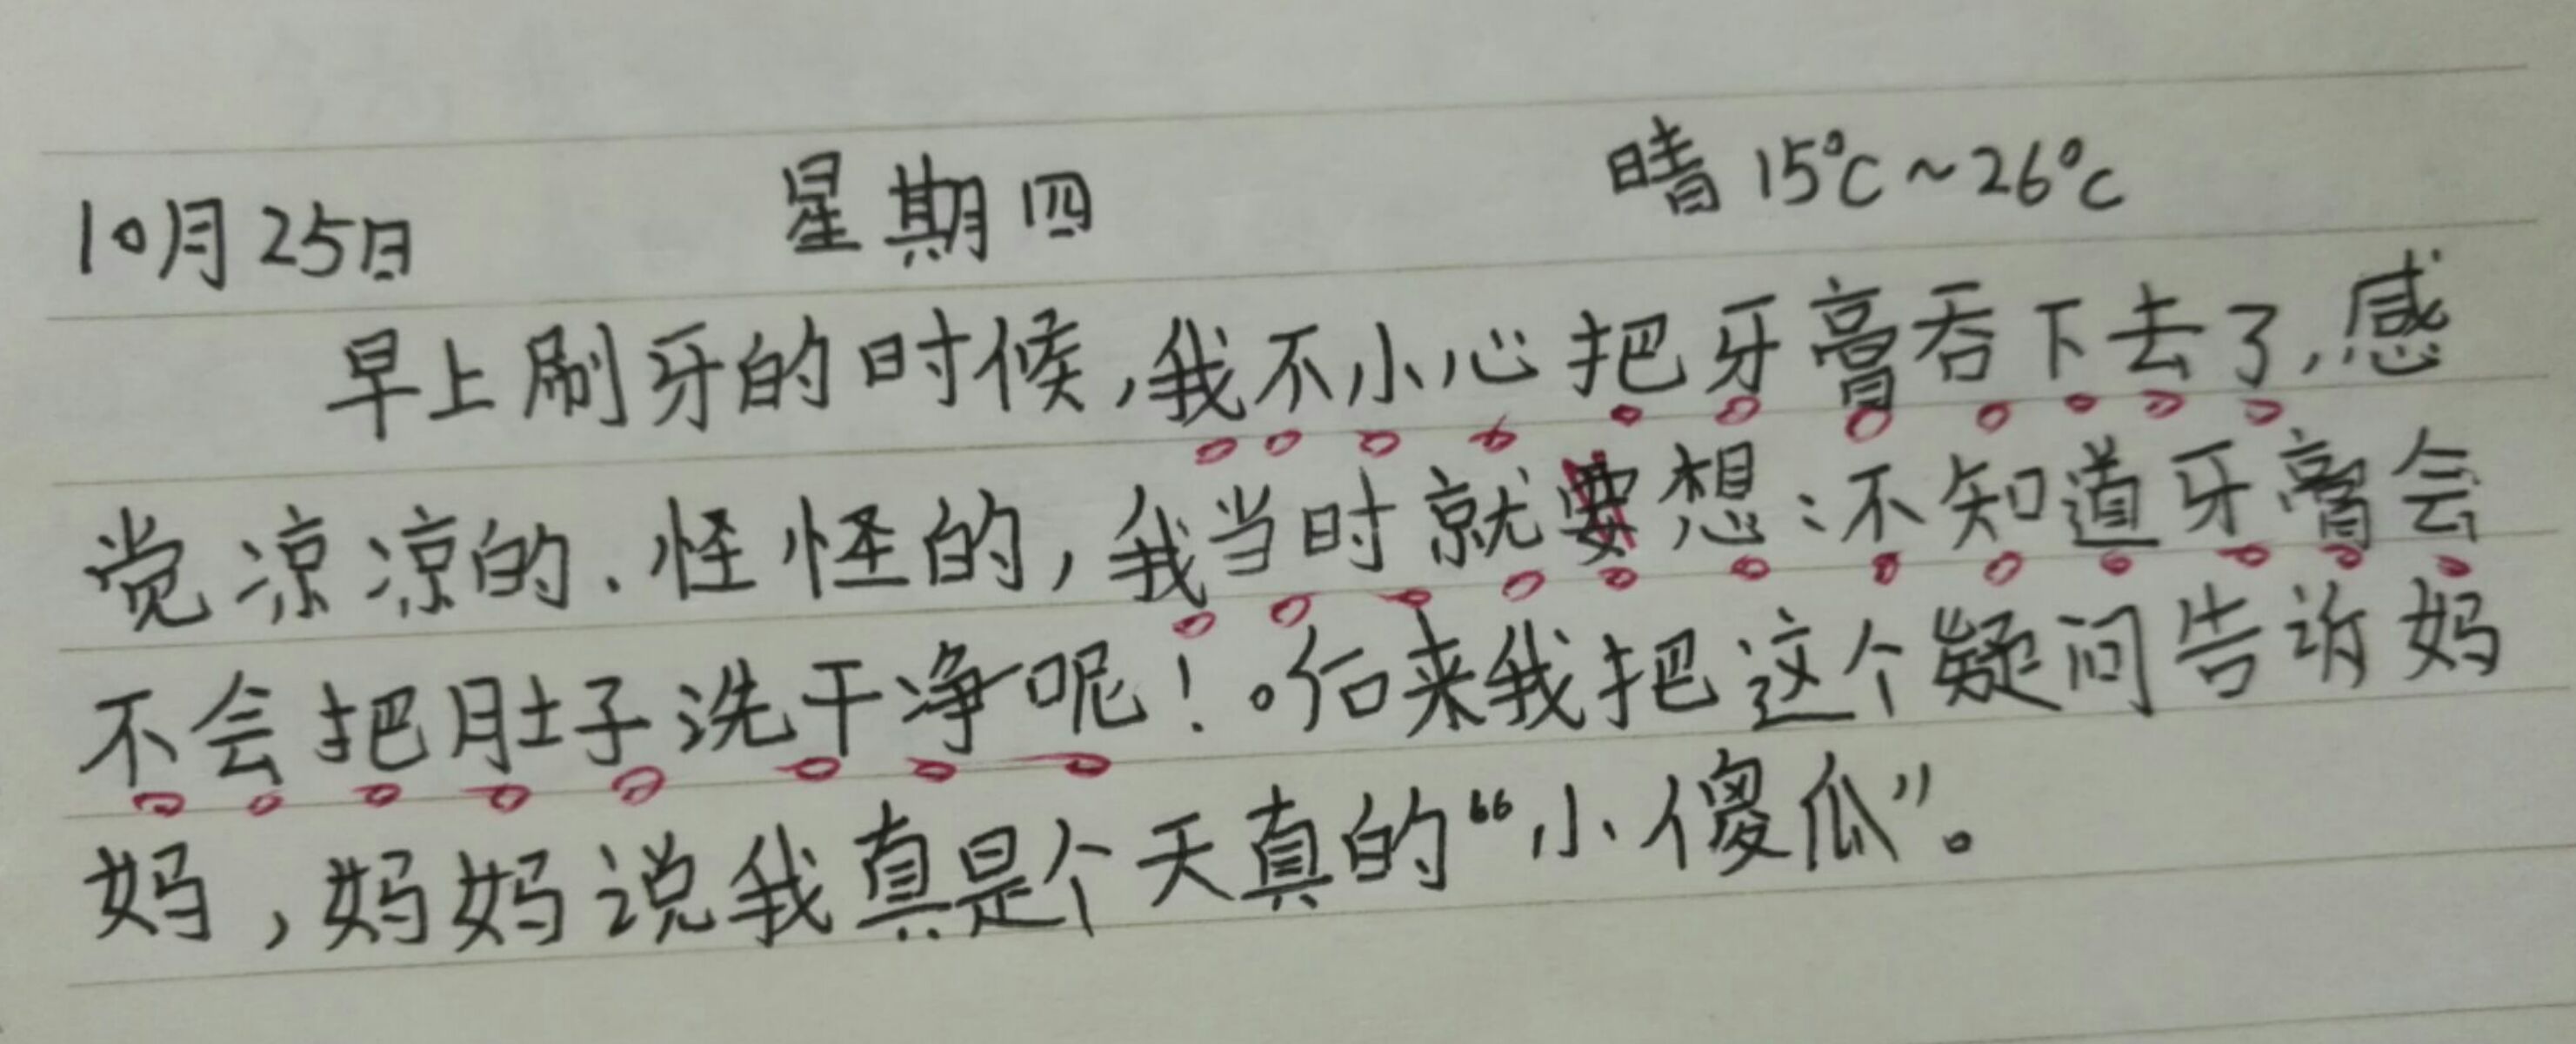 10月25日 星期四 晴 15℃~26℃
早上刷牙的时候,我不小心把牙膏吞下去了,感
觉凉凉的、怪怪的,我当时就要想:不知道牙膏会
不会把肚子洗干净呢!。后来我把这个疑问告诉妈
妈,妈妈说我真是个天真的“小傻瓜”。